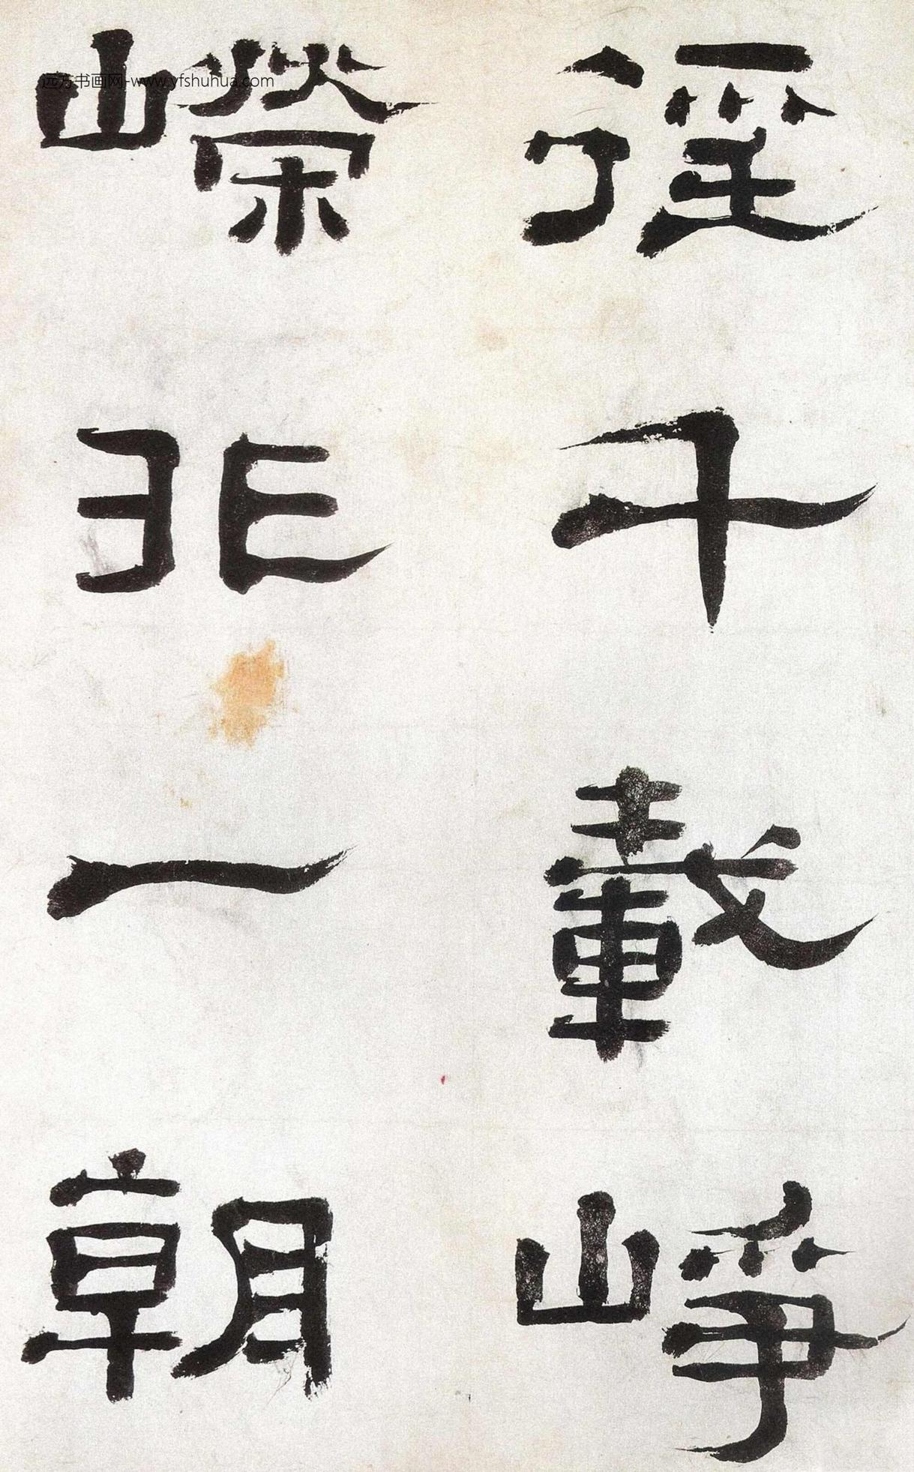 徑千載崢
嶸非一朝
远方书画网-www.yfshuhua.com